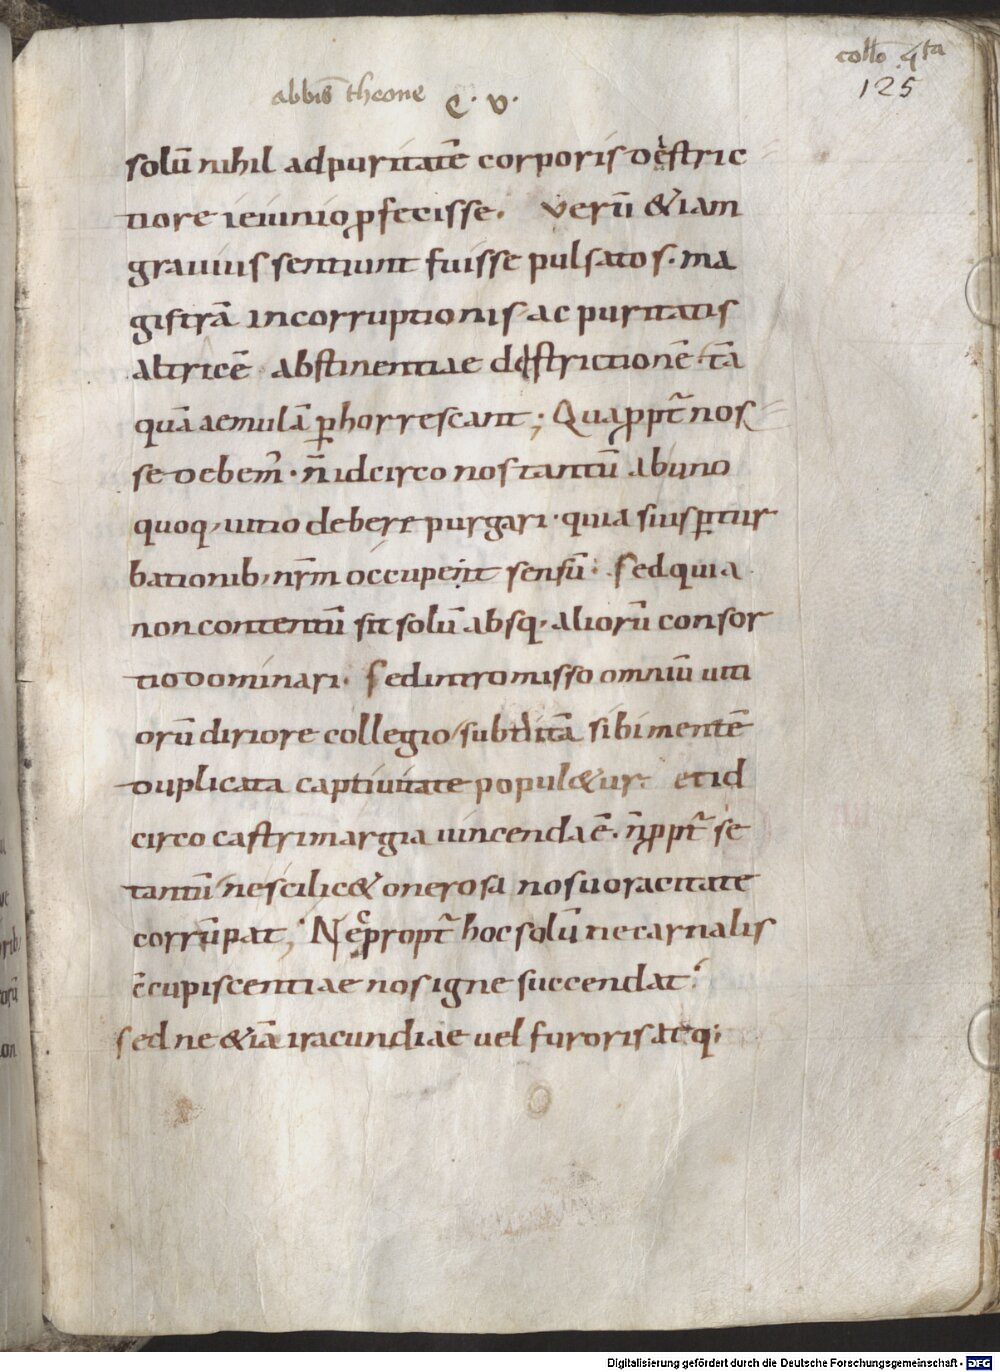 collo 4ta
125
abbis̄ theone C · V ·
solū nihil ad puritatē corporis destric
tiore ieiunio ꝓfecisse. Verū &iam
grauius sentiunt fuisse pulsatos · ma
gistrā incorruptionis ac puritatis
altricē abstinentiae destrictionē · tā
quā aemulā ꝑhorrescant; Quaꝓpt̄ nos
se debem̄ · n̄ idcirco nos tantū ab uno
quoq, uitio debere purgari · quia suis ꝑtur
bationib, nr̄m occupent sensū · Sed quia
non contentū sit solū absq, aliorū consor
tio dominari. Sed intromisso omniū uiti
orū diriore collegio, subditā sibi mentē
duplicata captiuitate popul&ur · et id
circo castrimargia uincenda ē · n̄ ꝓpt̄ se
tantū, ne scilic& onerosa nos uoracitate
corrūpat; Nec propt̄ hoc solū ne carnalis
c̄cupiscentiae nos igne succendat;
sed ne &iā iracundiae uel furoris atq;
Digitalisierung gefördert durch die Deutsche Forschungsgemeinschaft - DFG